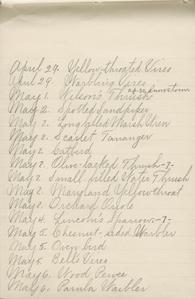 April 29. Yellow-throated Vireo
Apr. 29. Warbling Vireo
May 1. Wilson's Thrush
May 2. Spotted Sandpiper
May 2. Long-billed Marsh Wren
May 2. Scarlet Tanager
May 2. Catbird
May 2. Olive-backed Thrush-7-
May 2. Small billed Water Thrush
May 2. Maryland Yellowthroat
May 2. Orchard Oriole
May 4. Lincoln's Sparrow-7-
May 5. Chesnut-sided Warbler
May 5. Oven bird
May 5. Bell's Vireo
May 6. Wood Pewee
May 6. Parula Warbler